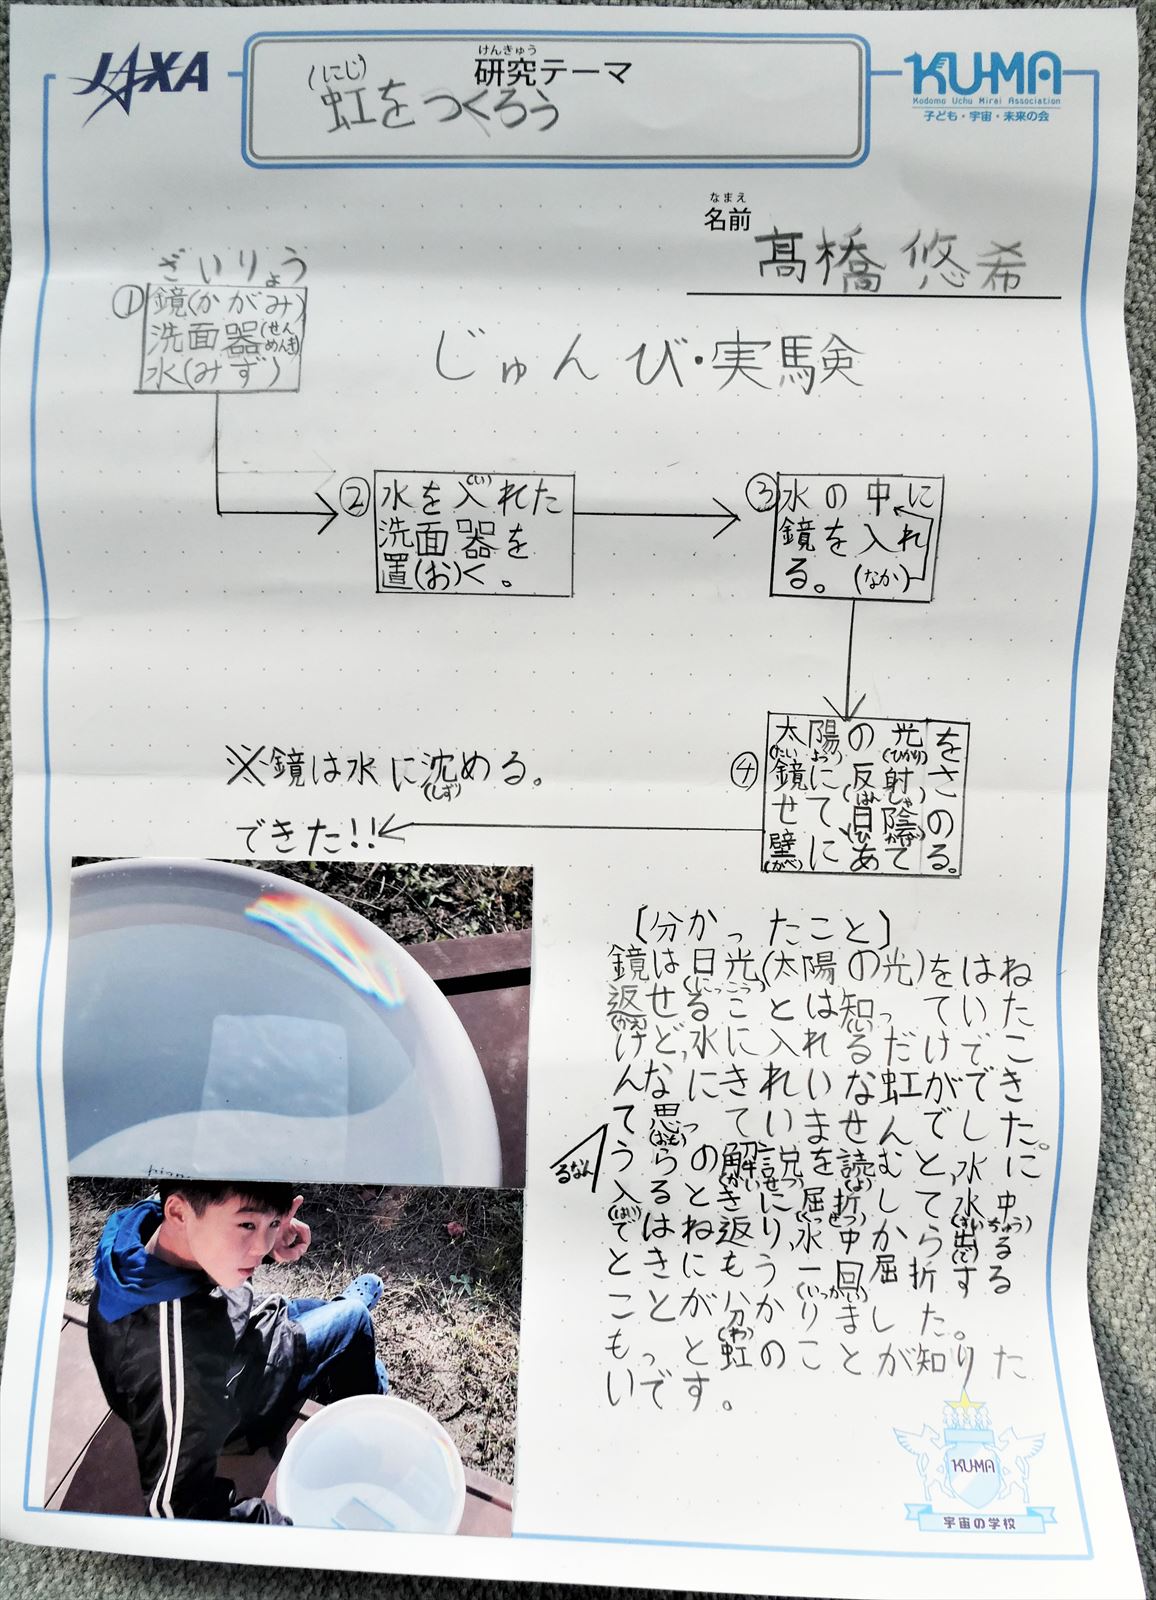 JAXA
けんきゅう
研究テーマ
(にじ)
虹をつくろう
KU-MA
Kodomo Uchu Mirai Association
子ども・宇宙・未来の会
なまえ
名前
髙橋 悠希
ざいりょう
①鏡(かがみ)
洗面器(せんめんき)
水(みず)
じゅんび・実験
②水を入(い)れた
洗面器を
置(お)く。
③水の中に
鏡を入れ
る。(なか)
④太陽(たいよう)の光(ひかり)を
鏡に反射(はんしゃ)さ
せて日陰(ひかげ)の
壁(かべ)にあてる。
※鏡は水に沈(しず)める。
できた!!
[分かったこと]
鏡は日光(にっこう)(太陽の光)をはね
返(かえ)せることは知(し)っていた
けど、水に入れるだけでこ
んなにきれいな虹ができ
るなん
て思(おも)っていませんでした。
うらの解説(かいせつ)を読(よ)むと、水に
入(はい)るときに屈折(くっせつ)して水中(すいちゅう)
ではね返り、水中から出(で)る
ときにもう一回(いっかい)屈折する
ことが分(わ)かりました。
もっと虹のことが知りた
いです。
KU-MA
宇宙の学校